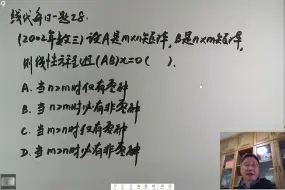 线代每日一题28.
(2002年数三)设A是m×n矩阵,B是n×m矩阵,
则线性方程组(AB)x=0( ).
A. 当n>m时仅有零解
B. 当n>m时必有非零解
C. 当m>n时仅有零解
D. 当m>n时必有非零解